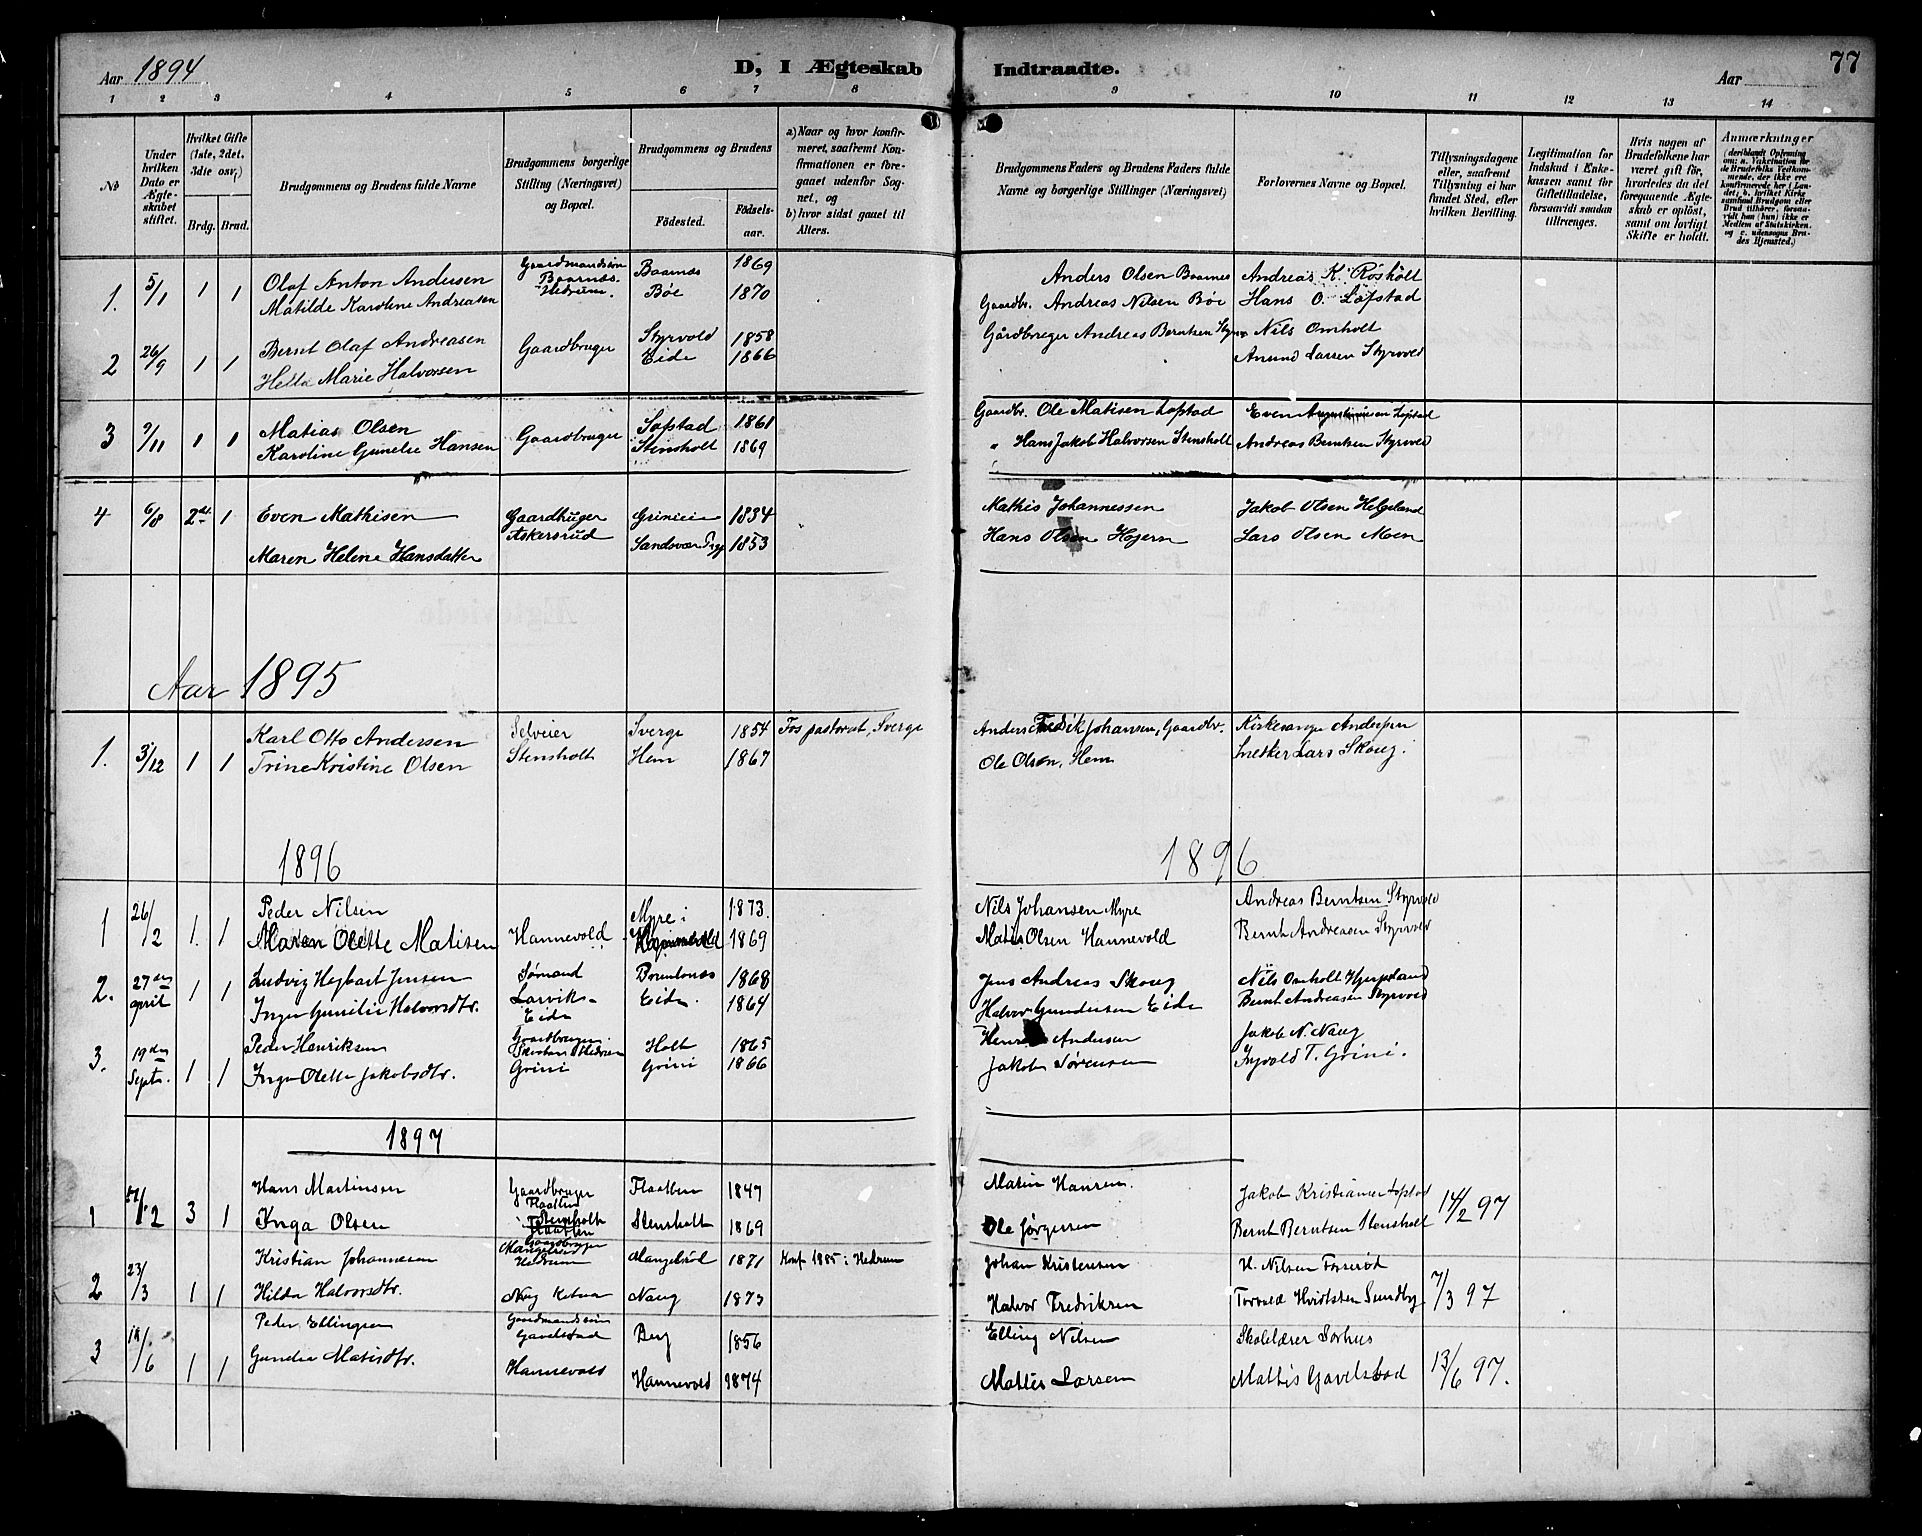 Aar 1894
D, I Ægteskab Indtraadte.
Aar
77
1 2 3 4 5 6 7 8 9 10 11 12 13 14
No
Under hvilken Dato er Ægteskabet stiftet.
Hvilket Gifte (1ste, 2det, 3die osv.)
Brdg. Brud.
Brudgommens og Brudens fulde Navne
Brudgommens borgerlige Stilling (Næringsvei) og Bopæl.
Brudgommens og Brudens
Fødested.
Fødselsaar.
a) Naar og hvor konfirmeret, saafremt Konfirmationen er foregaaet udenfor Sognet, og
b) hvor sidst gaaet til Alters.
Brudgommens Faders og Brudens Faders fulde Navne og borgerlige Stillinger (Næringsvei)
Forlovernes Navne og Bopæl.
Tillysningsdagene eller, saafremt Tillysning ei har fundet Sted, efter hvilken Bevilling.
Legitimation for Indskud i Enkekassen samt for Giftetilladelse, forsaavidt saadan tiltrænges.
Hvis nogen af Brudefolkene har været gift før, hvorledes da det foregaaende Ægteskab er opløst, samt om lovligt Skifte er holdt.
Anmærkninger
(deriblandt Oplysning om: a. Vakcination for de Brudefolks Vedkommende, der ikke ere konfirmerede her i Landet; b. hvilket Kirkesamfund Brudgom eller Brud tilhører, forsaavidt han (hun) ikke er Medlem af Statskirken, og c. udensogns Brudes Hjemsted.)
1. 5/1 1 1 Olaf Anton Andersen Gaardmandssøn Baarnes Hedrum. Baarnes 1869 Anders Olsen Baarnes Andreas K. Røsholt
Matilde Karoline Andreasen Bøe 1870 Gaardbr. Andreas Nilsen Bøe Hans O. Løfstad
2 26/9 1 1 Bernt Olaf Andreasen Gaardbruger Styrvold 1858 Gårdbruger Andreas Berntsen Styrv Nils Omholt
Helta Marie Halvorsen Eide 1866 Amund Larsen Styrvold
3 9/11 1 1 Matias Olsen Gaardbruger Løfstad 1861 Gaardbr. Ole Matisen Lofstad Even Lofstad
Karoline Gunelie Hansen Stensholt 1869 " Hans Jakob Halvorsen Stensholt Andreas Berntsen Styrvold
4 6/8 2det 1 Even Mathisen Gaardbruger Askersrud 1834 Mathis Johannessen Jakob Olsen Helgeland
Maren Helene Hansdatter Sandsvær 1853 Hans Olsen Hojern Lars Olsen Moen
Aar 1895
1. 3/12 1 1 Karl Otto Andersen Selveier Sverge 1854 Fos pastorat, Sverge Anders Fredrik Johansen, Gaardbr. Kirkesanger Andersen
Trine Kristine Olsen Stensholt Hem 1867 Ole Olsen, Hem Snekker Lars Skoug.
1896 1896
1 26/2 1. 1 Peder Nilsen Myre i 1873. Nils Johansen Myre Andreas Berntsen Styrvold
Maren Olette Matisen Hannevold 1869 Matis Olsen Hannevold Bernt Andreasen Styrvold
2. 27de april 1 1 Ludvig Hegbart Jensen Sømand Larvik 1868 Jens Andreas Skoug Nils Omholt Hjerpeland
Inger Gunilie Halvorsdtr. Eide Eide. 1864 Halvor Gundersen Eide Bernt Andreasen Styrvold
3. 19de Septr. 1 1 Peder Henriksen Gaardbruger Hedrum Holt 1865 Andersen Jakob N. Naug
Inga Olette Jakobsdtr. Grini Grini 1866 Jakob Sørensen Ingvald T. Grini.
1897
1 /2 3 1 Hans Martinsen Gaardbruger Flaatten Flaatten 1847 Matin Hansen. Jakob Kristiansen Lofstad 14/2 97
Inga Olsen Stensholt Stensholt 1869 Ole Jørgensen Bernt Berntsen Stensholt
2 23/3 1 1 Kristian Johannesen Gaardbruger Hedrum Mangelsrød 1871 Konf 1885 i Hedrum Johan Kristensen H. Nilsen Fosserød 7/3 97
Hilda Halvorsdtr. Naug 1873 Halvor Fredriksen Torvald Hvidtsten Sundby
3 18/6 1 1 Peder Ellingsen Gaardmandssøn Gavelstad Berg 1856 Elling Nilsen Skolelærer Sorhus 13/6 97.
Gundia Matisdtr. Hannevold Hannevold 1874 Mattis Larsen Mattis Gavelstad